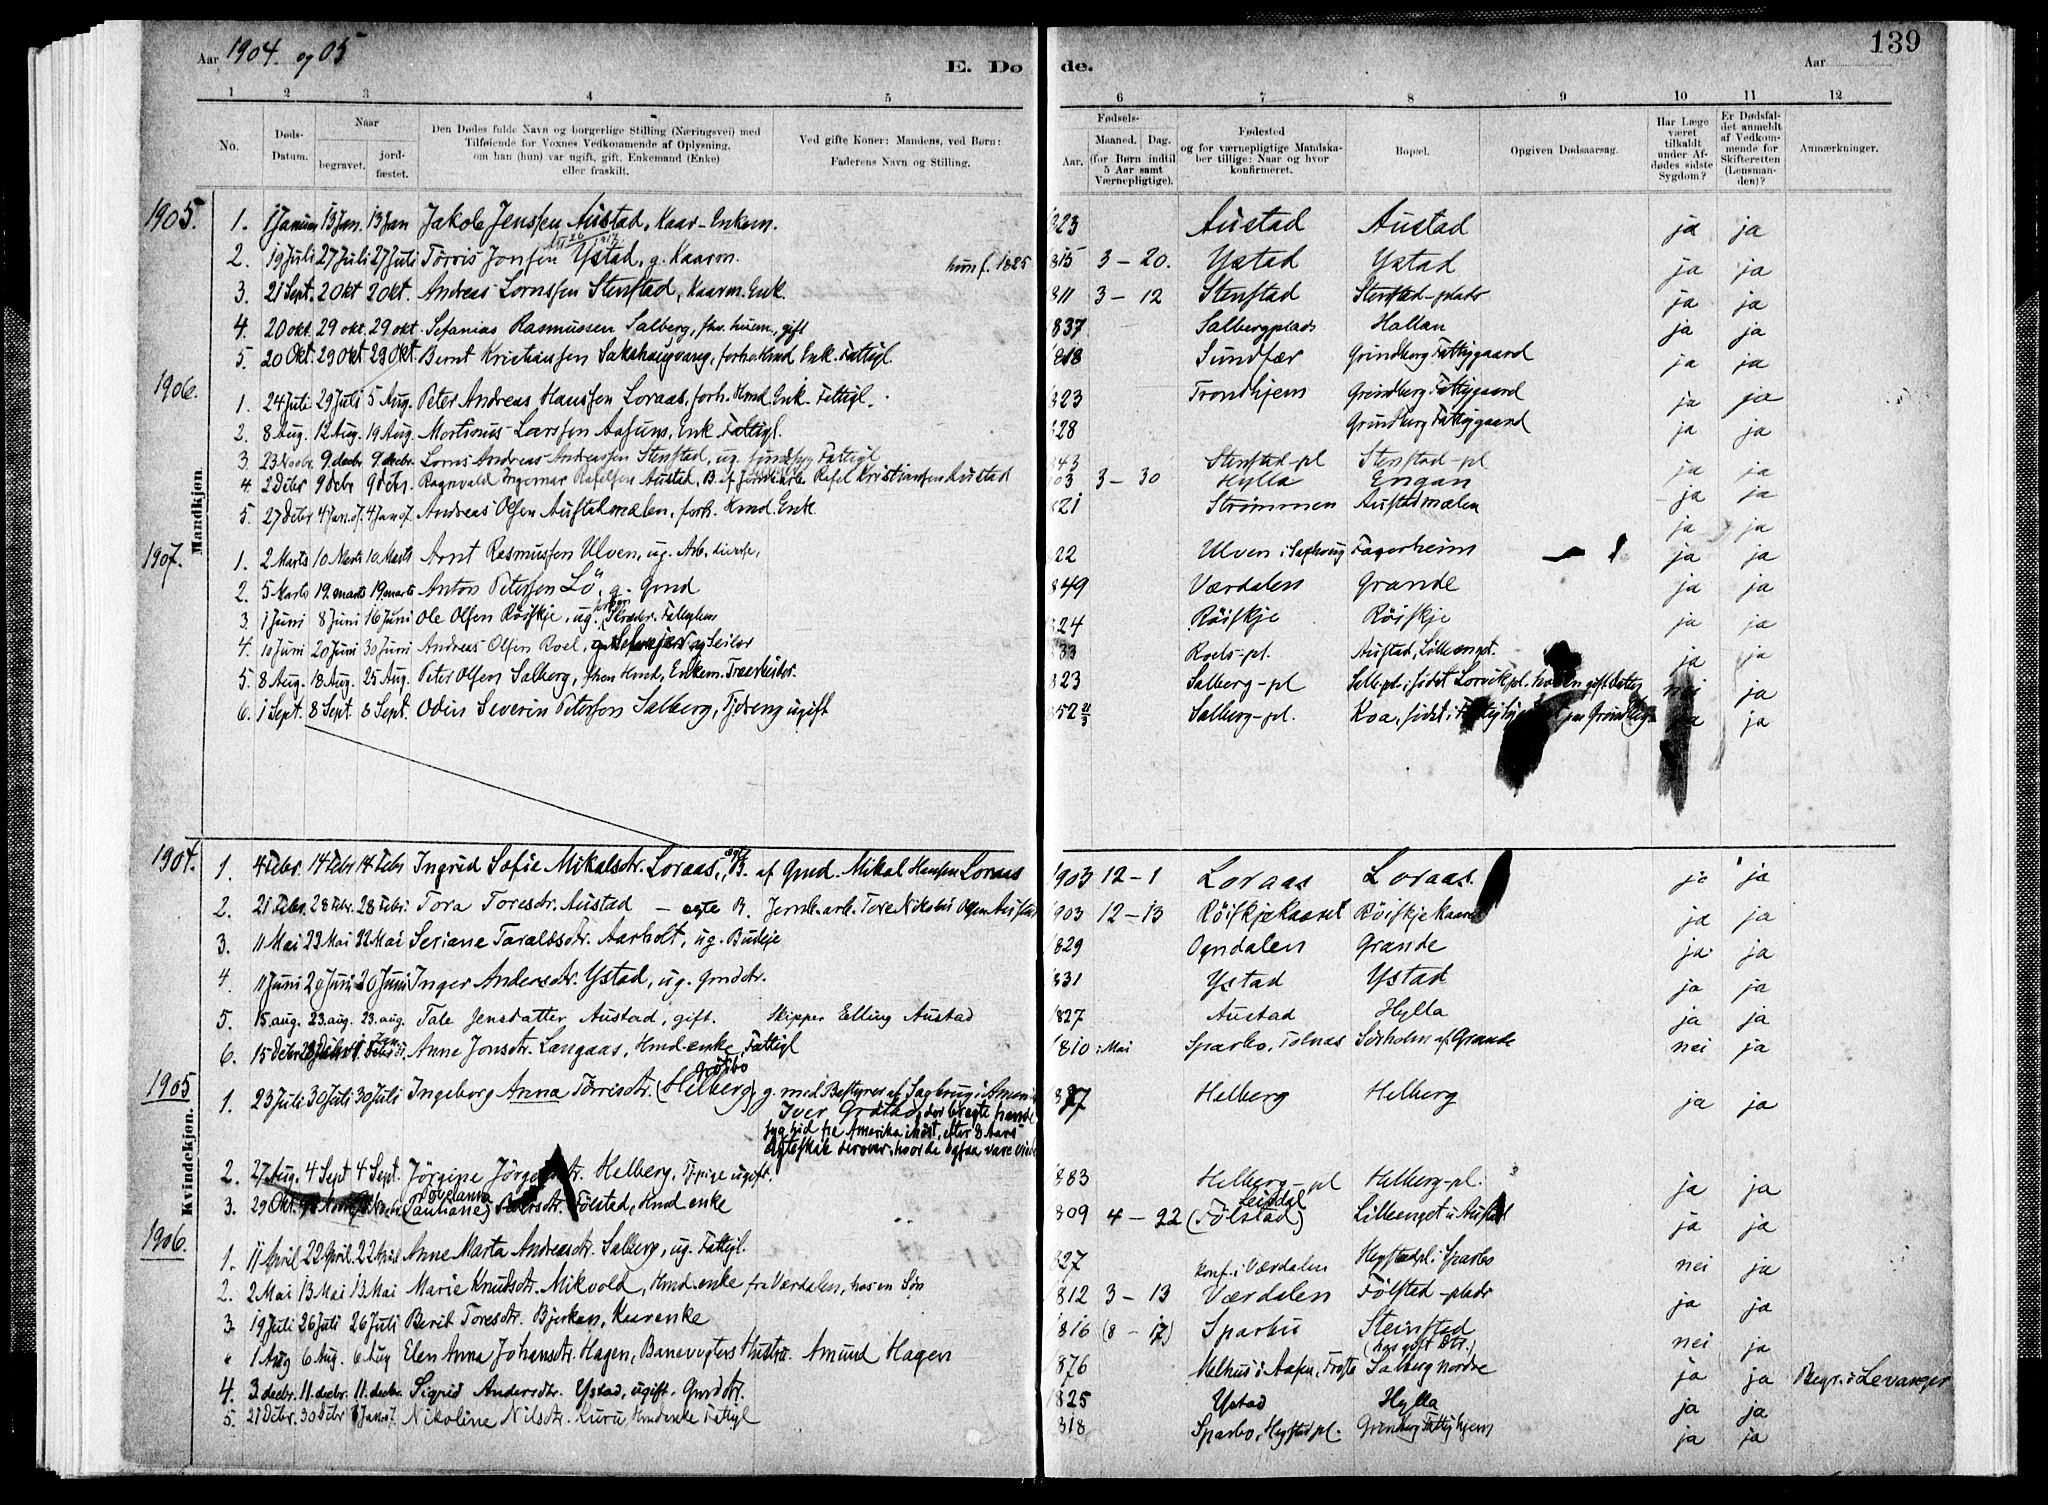 139
Aar 1904 og 05
E. Dø de.
Aar
1 2 3 4 5 6 7 8 9 10 11 12
No. Døds-Datum. Naar begravet. jordfæstet. Den Dødes fulde Navn og borgerlige Stilling (Næringsvei) med Tilføiende for Voxnes Vedkommende af Oplysning, om han (hun) var ugift, gift, Enkemand (Enke) eller fraskilt. Ved gifte Koner: Mandens, ved Børn: Faderens Navn og Stilling. Fødsels- Aar. Maaned. Dag. (for Børn indtil 5 Aar samt Værnepligtige). Fødested og for værnepligtige Mandskaber tillige: Naar og hvor konfirmeret. Bopæl. Opgiven Dødsaarsag. Har Læge været tilkaldt under Afdødes sidste Sygdom? Er Dødsfaldet anmeldt af Vedkommende for Skifteretten (Lensmanden)? Anmærkninger.
Mandkjøn.
1905. 1. 1 Januar 13 Jan. 13 Jan Jakob Jenssen Austad, Kaar-Enkem. 823 Austad Austad ja ja
2. 19 Juli 27 Juli 27 Juli Törris Jonssen Ystad, g. Kaarm. hun f. 1825 815 3 – 20. Ystad Ystad ja ja
3. 21 Sept. 2 Okt 2 Okt. Andreas Lornssen Stenstad, Kaarm. Enk. 811 3 – 12 Stenstad Stenstad-plads ja ja
4. 20 okt. 29 okt. 29 okt. Sefanias Rasmussen Salberg, gift 837 Salbergplads Hallan ja ja
5. 20 Okt. 29 Okt 29 Okt. Bernt Kristiansen Sakshaugvang, forh. Hmd. Enk. Fattigl 818 Sundfær Grindberg Fattiggaard ja ja
1906. 1. 24 Juli 29 Juli 5 Aug. Peter Andreas Hanssen Loraas, forh. Hmd Enk. Fattigl. 823 Trondhjem Grindberg Fattiggaard ja ja
2. 8 Aug. 12 Aug. 19 Aug. Martinus Larssen Aasums, Enk. Fattigl. 828 Grindberg Fattiggaard ja ja
3. 23 Novbr 9. decbr 9. decbr. Lorns Andreas Andreassen Stenstad, ug. Fattigl 843 Stenstad-pl Stenstad-pl ja ja
4. 2 Dcbr 9 dcbr 9 dcbr. Ragnvald Ingemar Rafelsen Austad, B. af Rafel Kristiansen Austad 03 3 – 30 Hylla Engan ja ja
5. 27 Dcbr 4 Jan. 07. 4 Jan 07. Andreas Olsen Austadmælen, forh. Hmd. Enk. 821 Strömmen Austadmælen ja ja
1907. 1. 2 Marts 10 Marts 10 Marts Arnt Rasmussen Ulven, ug. Arb. 22 Ulven i Saxhaug Fagerheim ja ja
2. 5 Marts 12 marts 19 marts Anton Petersen Lö, g. Gmd 849 Værdalen Grande ja ja
3. 1 Juni 8 Juni 16 Juni Ole Olsen Röiskje, ug. Fattiglem 824 Röiskje Röiskje ja ja
4. 10 Juni 20 Juni 30 Juni Andreas Olsen Roel, og Seiler 833 Roels-pl. Austad, Lilleenget. ja ja
5. 8 Aug. 18 Aug. 25 Aug. Peter Olsen Salberg, Hmd, Enkem. Træarbeider. 823 Salberg-pl nei ja
6. 1 Sept. 8 Sept. 8 Sept. Odin Severin Petersen Salberg, Tjdreng ugift 852 21/3 Salberg-pl. Koa, ja ja
Kvindekjøn.
1904. 1. 4 Febr 14 Febr 14 Febr Ingrid Sofie Mikalsdtr. Loraas, ægte B. af Gmd. Mikal Hansen Loraas 1903 12 – 1 Loraas Loraas. ja ja
2. 21 Febr. 28 Febr. 28 Febr. Tora Toresdtr. Austad – egte B. Jernb.arb. Tore Nikolai Olsen Austad 1903 12 – 13 Röiskje Kaaret Röiskje Kaaret ja ja
3. 11 Mai 22 Mai 22 Mai Seriane Taraldsdtr. Aarholt, ug. Budeje 829 Ogndalen Grande ja ja
4. 11 Juni 20 Juni 20 Juni Inger Andersdtr. Ystad, ug. Gmddtr. 831 Ystad Ystad ja ja
5. 15. aug. 23. aug. 23. aug. Tale Jensdatter Austad, gift. Skipper Elling Austad 1827 Austad Hylla ja ja
6. 15 Dcbr Anne Jonsdtr. Langaas, Hmd-enke Fattigl 1810 i Mai Sparbo, Tolnas Sörholm af Grande nei ja
1905 1. 23 Juli 30 Juli 30 Juli Ingeborg Anna Törrisdtr. (Helberg) g. med Bestyrer af Sagbrug i Amerika Helberg Helberg ja ja
Iver
syg hid fra Amerika ihöst, efter 3 Aars
Ægteskab derover, hvor de ogsaa vare viede
2. 27 Aug. 4 Sept 4 Sept. Jörgine Helberg, Tjpige ugift. 883 Helberg-pl Helberg-pl. ja ja
3. 29 Okt. Fölstad, Hmd enke 809 4 – 22 (Fölstad) Lilleenget u Austad ja ja
1906. 1. 11 April 22 April. 22 April Anne Marta Andreasdtr. Salberg, ug. Fattigl. 827 Konf. i Værdalen Hegstadpl. i Sparbo nei ja
2. 2 Mai 13 Mai 13 Mai Marie Knudsdtr. Mikvold, Hmd. enke fra Værdalen, hos en Sön 1812 3 – 13 Værdalen Fölstad-plads ja ja
3. 19 Juli 26 Juli 26 Juli Berit Toresdtr. Bjerkan, Kaarenke 1816 (8 – 17) Sparbu Steinstad (hos gift Dtr.) nei ja
" 1 Aug 6 Aug. 6 Aug Elen Anna Johansdtr. Hagen, Banevogters Hustru. Amund Hagen 876 Melhus i Aasen, Frosta Salberg nordre ja ja Begr. i Levanger
4. 3. decbr. 11. decbr. 11. decbr. Sigrid Andersdtr. Ystad, ugift. Gmddtr. 1825 Ystad Hylla ja ja
5. 21 Dcbr. 30 Dcbr Nikoline Nilsdtr. Kuru, Hmdenke Fattigl 818 Sparbo, Hegstad pl. Grindberg Fattighjem ja ja